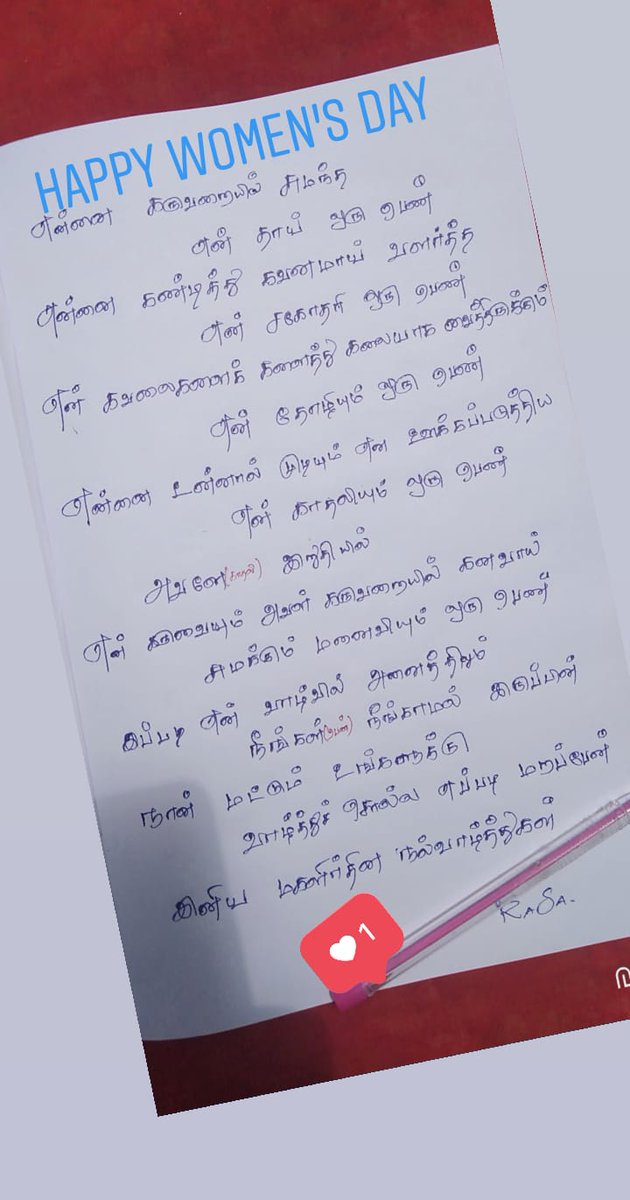 HAPPY WOMEN'S DAY
என்னை கருவறையில் சுமந்த
என் தாய் ஒரு பெண்
என்னை கண்டித்து கவனமாய் வளர்த்த
என் சகோதரி ஒரு பெண்
என் கவலைகளைக் களைத்து கலையாக வைத்திருக்கும்
என் தோழியும் ஒரு பெண்
என்னை உன்னால் முடியும் என ஊக்கப்படுத்திய
என் காதலியும் ஒரு பெண்
அவளே(காதலி) இறுதியில்
என் கருவையும் அவள் கருவறையில் கனவாய்
சுமக்கும் மனைவியும் ஒரு பெண்
இப்படி என் வாழ்வில் அனைத்திலும்
நீங்கள்(பெண்) நீங்காமல் இருப்பின்
நான் மட்டும் உங்களுக்கு
வாழ்த்துச் சொல்ல எப்படி மறப்பேன்
இனிய மகளிர்தின நல்வாழ்த்துகள்
RaSa.
1